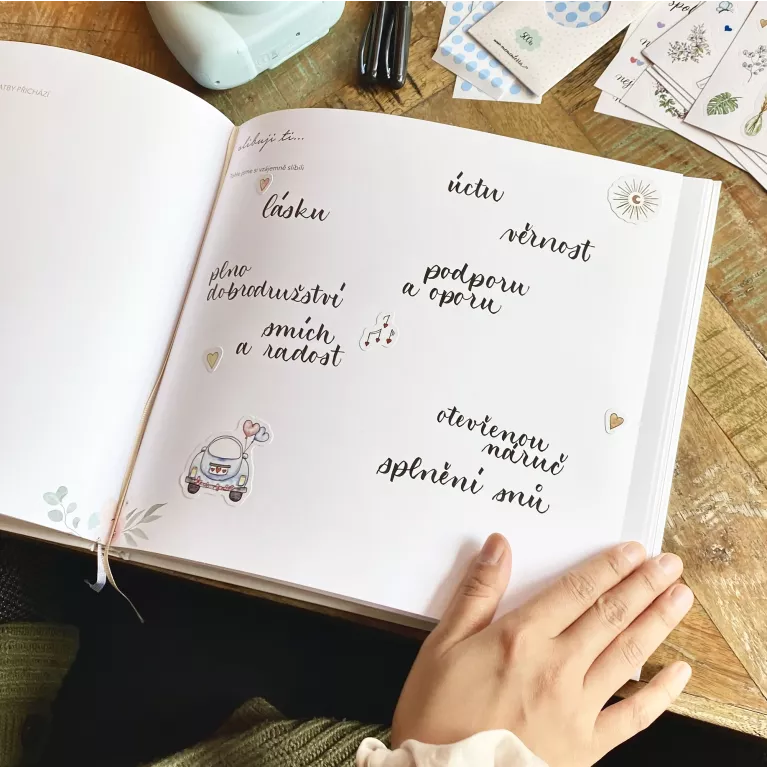 ATBY PŘICHÁZÍ
slibuji ti...
jsme si vzájemně slíbili
lásku
úctu
věrnost
plno
dobrodružství
podporu
a oporu
smích
a radost
otevřenou
náruč
splnění snů